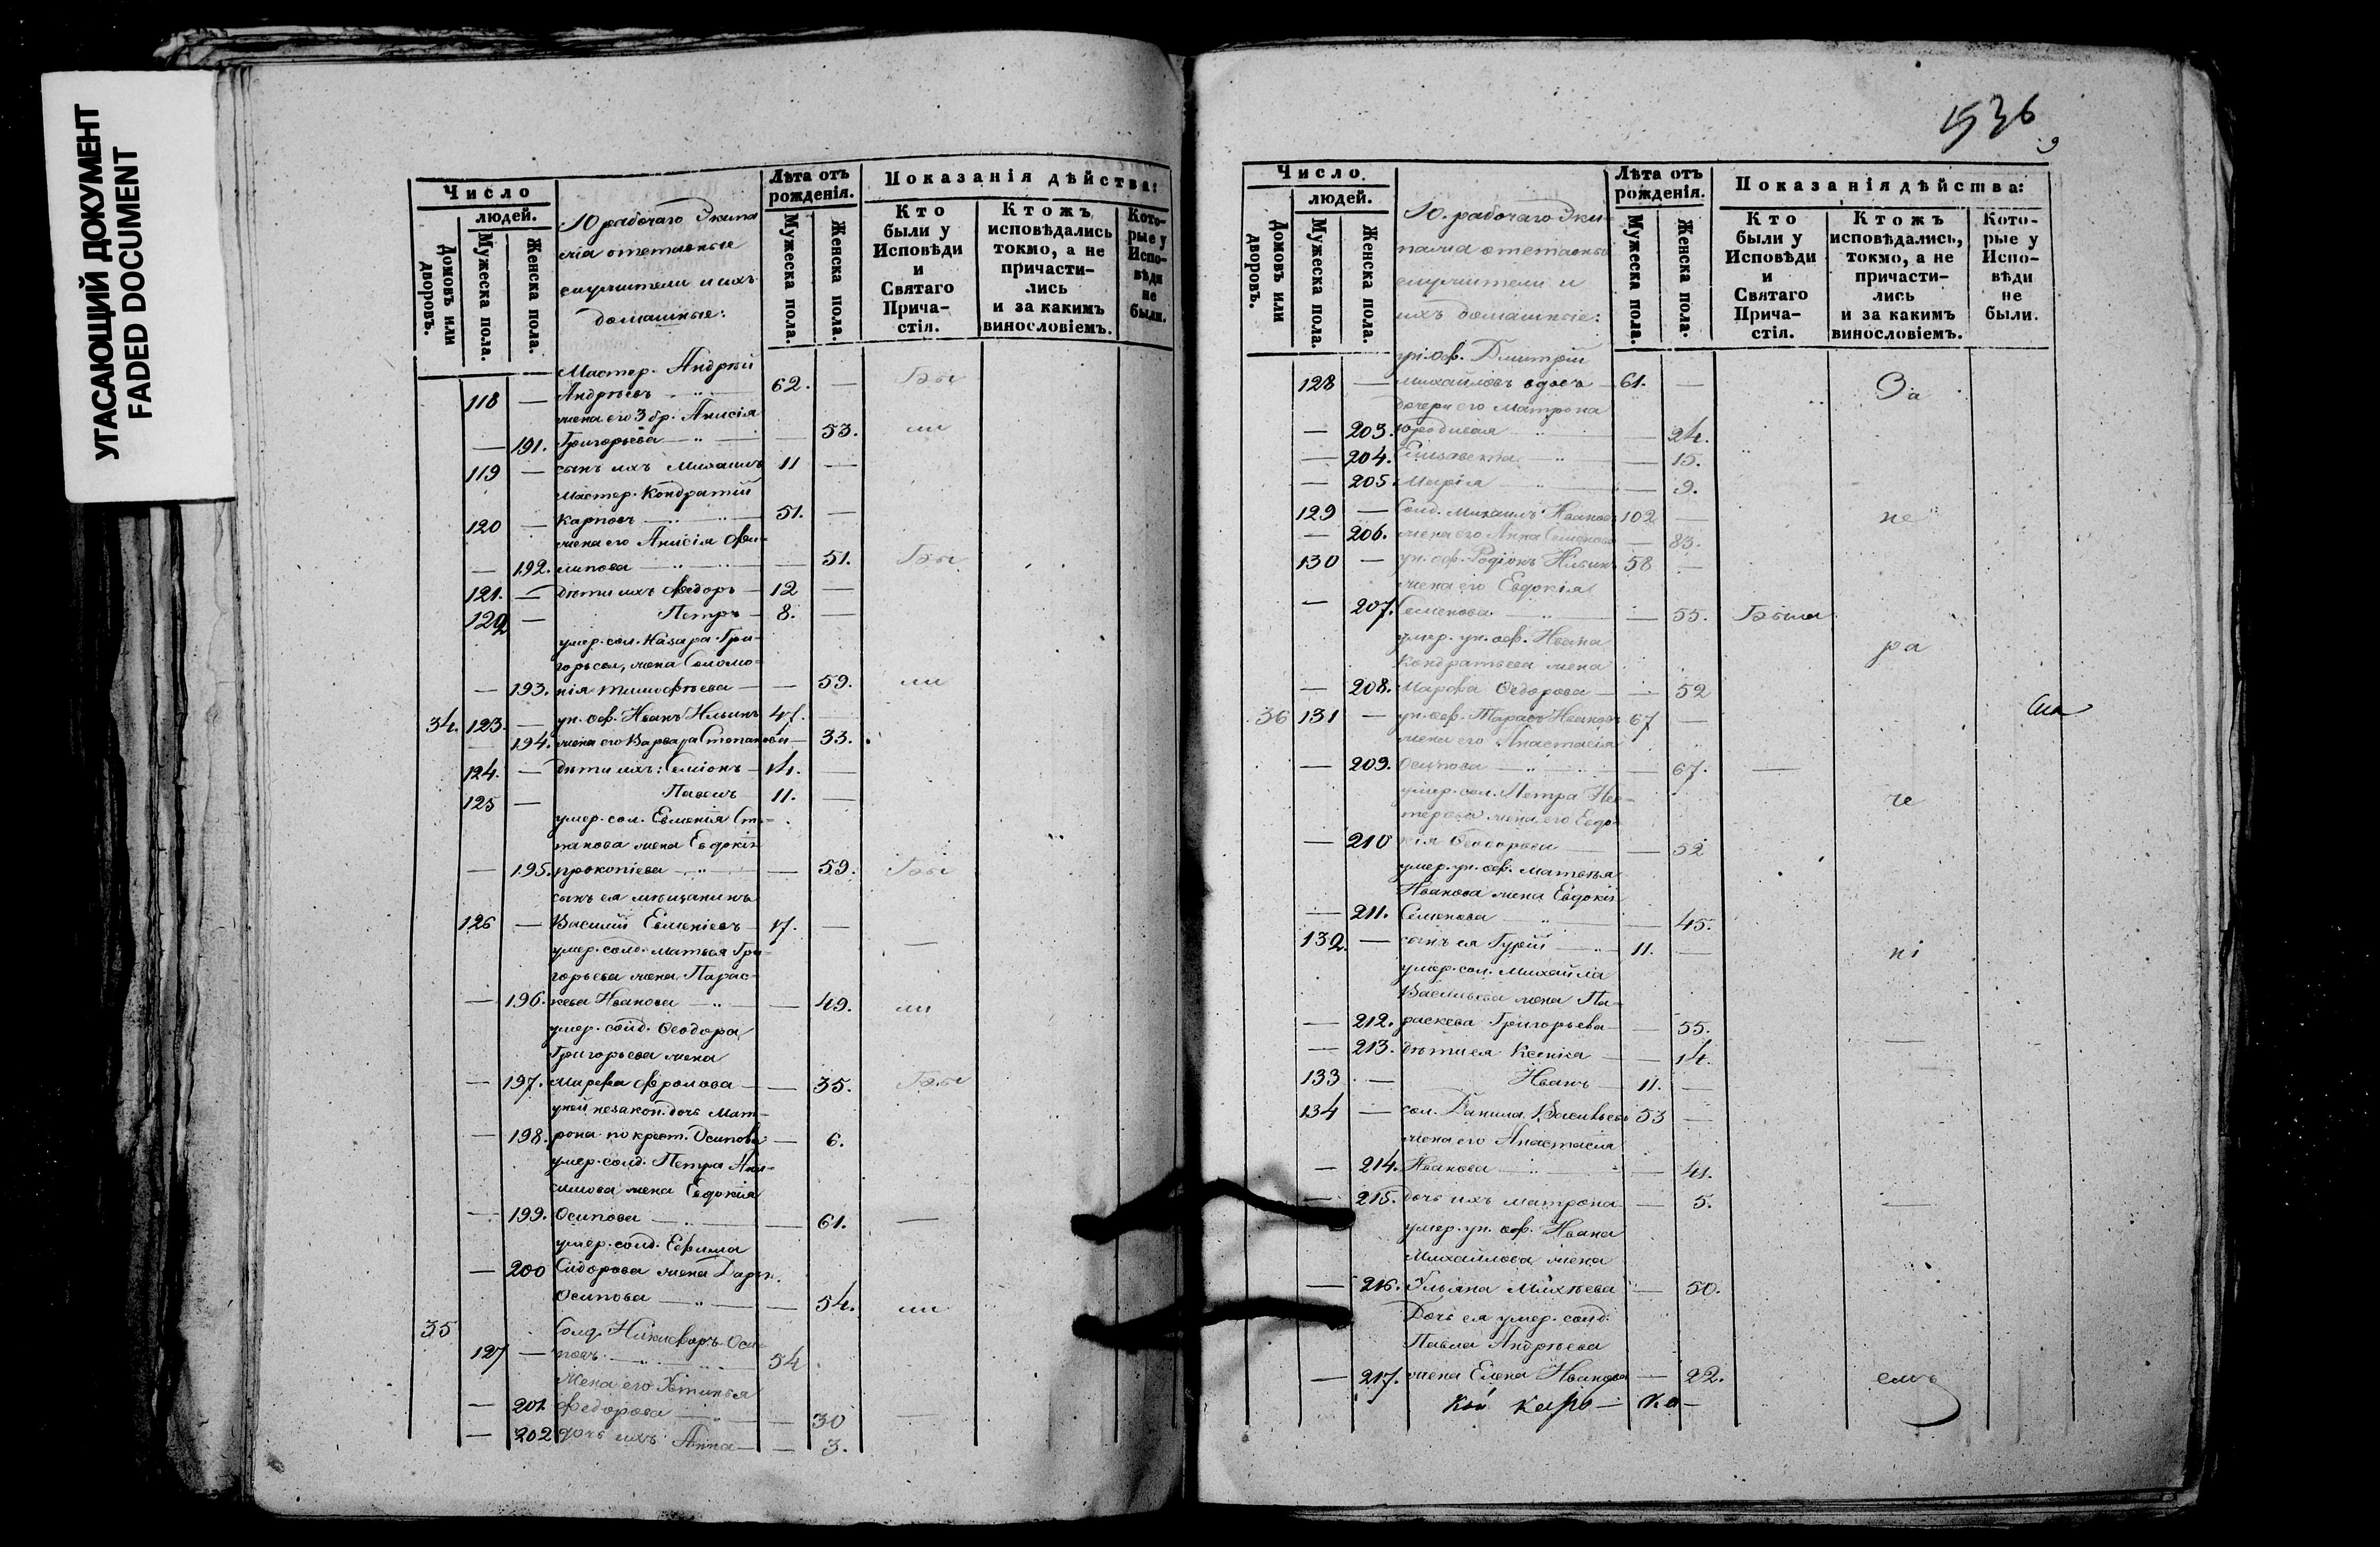 УГАСАЮЩИЙ ДОКУМЕНТ
FADED DOCUMENT
Число
людей.
Домовъ или дворовъ.
Мужеска пола.
Женска пола.
10 рабочаго Экипа
жа отставные
служители и ихъ
домашные:
Лѣта отъ рожденія.
Мужеска пола.
Женска пола.
Показанія дѣйства:
Кто были у Исповѣди и Святаго Прича-стія.
Ктожъ исповѣдались токмо, а не причасти-лись и за какимъ винословіемъ.
Кото-рые у Испо-вѣди не были.
Мастер. Андрей
118 — Андреевъ — 62. — Бы
жена его 3 бр. Анисія
— 191. Григорьева — — 53. ли
119 — сынъ ихъ Михаилъ 11 —
Мастер. Кондратій
120 — Карповъ — 51. —
жена его Анисія Фи-
— 192. липова — — 51. Бы
121. — дѣти ихъ Федоръ — 12 —
122 — Петръ — 8. —
умер. сол. Назара Гри-
горьева, жена Соломо-
— 193. нія Тимофѣева — — 59. ли
34. 123. — ун. оф. Иванъ Ильинъ 47. —
— 194. жена его Варвара Степанова — 33.
124. — дѣти ихъ: Семіонъ — 14. —
125 — Павелъ 11. —
умер. сол. Евменія Сте-
панова жена Евдокія
— 195. прокопіева — — 59. Бы
сынъ ея мѣщанинъ
126 — Василій Евменіевъ — 17. —
умер. солд. Матвея Гри-
горьева жена Парас-
— 196. кева Иванова — — 49. ли
умер. солд. Ѳеодора
Григорьева жена
— 197. Марфа Фролова — — 35. Бы
у ней незакон. дочь Мат-
— 198. рона по крест. Осипова — 6.
умер. солд. Петра Ани-
симова жена Евдокія
— 199. Осипова — — 61. —
умер. солд. Ефима
— 200 Сидорова жена Дарья
Осипова — — 54. ли
35
Солд. Никифоръ Оси-
127 — повъ — 54
Жена его Устинья
— 201. Федорова — — 30 —
— 202 дочь ихъ Анна — — 3.
536
9
Число
людей.
Домовъ или дворовъ.
Мужеска пола.
Женска пола.
10. рабочаго Эки-
пажа отставные
служители и
ихъ домашніе:
Лѣта отъ рожденія.
Мужеска пола.
Женска пола.
Показанія дѣйства:
Кто были у Исповѣди и Святаго Прича-стія.
Ктожъ исповѣдались, токмо, а не причасти-лись и за какимъ винословіемъ.
Кото-рые у Испо-вѣди не были.
ун. оф. Дмитрій
128 — Михайловъ вдовъ — 61. — За
дочери его Матрона
— 203. юродивая — — 24.
— 204. Елисавета — — 15.
— 205. Марія — — 9.
129 — Солд. Михаилъ Ивановъ 102 — не
— 206. жена его Анна Семенова — 83.
130 — ун. оф. Родіонъ Ильинъ 58 —
жена его Евдокія
— 207. Семенова — — 55. Была
умер. ун. оф. Ивана
Кондратьева жена ра
— 208. Марфа Ѳедорова — — 52
36 131 — ун. оф. Тарасъ Ивановъ 67 —
жена его Анастасія
— 209. Осипова — — 67. —
умер. сол. Петра Нес-
терова жена его Евдо- че
— 210 кія Ѳеодорова — — 52
умер. ун. оф. Матвѣя
Иванова жена Евдокія
— 211. Семенова — — 45.
132. — сынъ ея Гурій — 11. — ні
умер. сол. Михайла
Васильева жена Па-
— 212. раскева Григорьева — — 55.
— 213. дѣти ея Ксенія — — 14.
133 — Иванъ — 11. —
134 — сол. Данила Васильевъ 53 —
жена его Анастасія
— 214. Иванова — — 41.
— 215. дочь ихъ Матрона — 5. —
умер. ун. оф. Ивана
Михайлова жена
— 216. Ульяна Михѣева — 50.
Дочь ея умер. солд.
Павла Андрѣева
— 217. жена Елена Иванова — 22. емъ